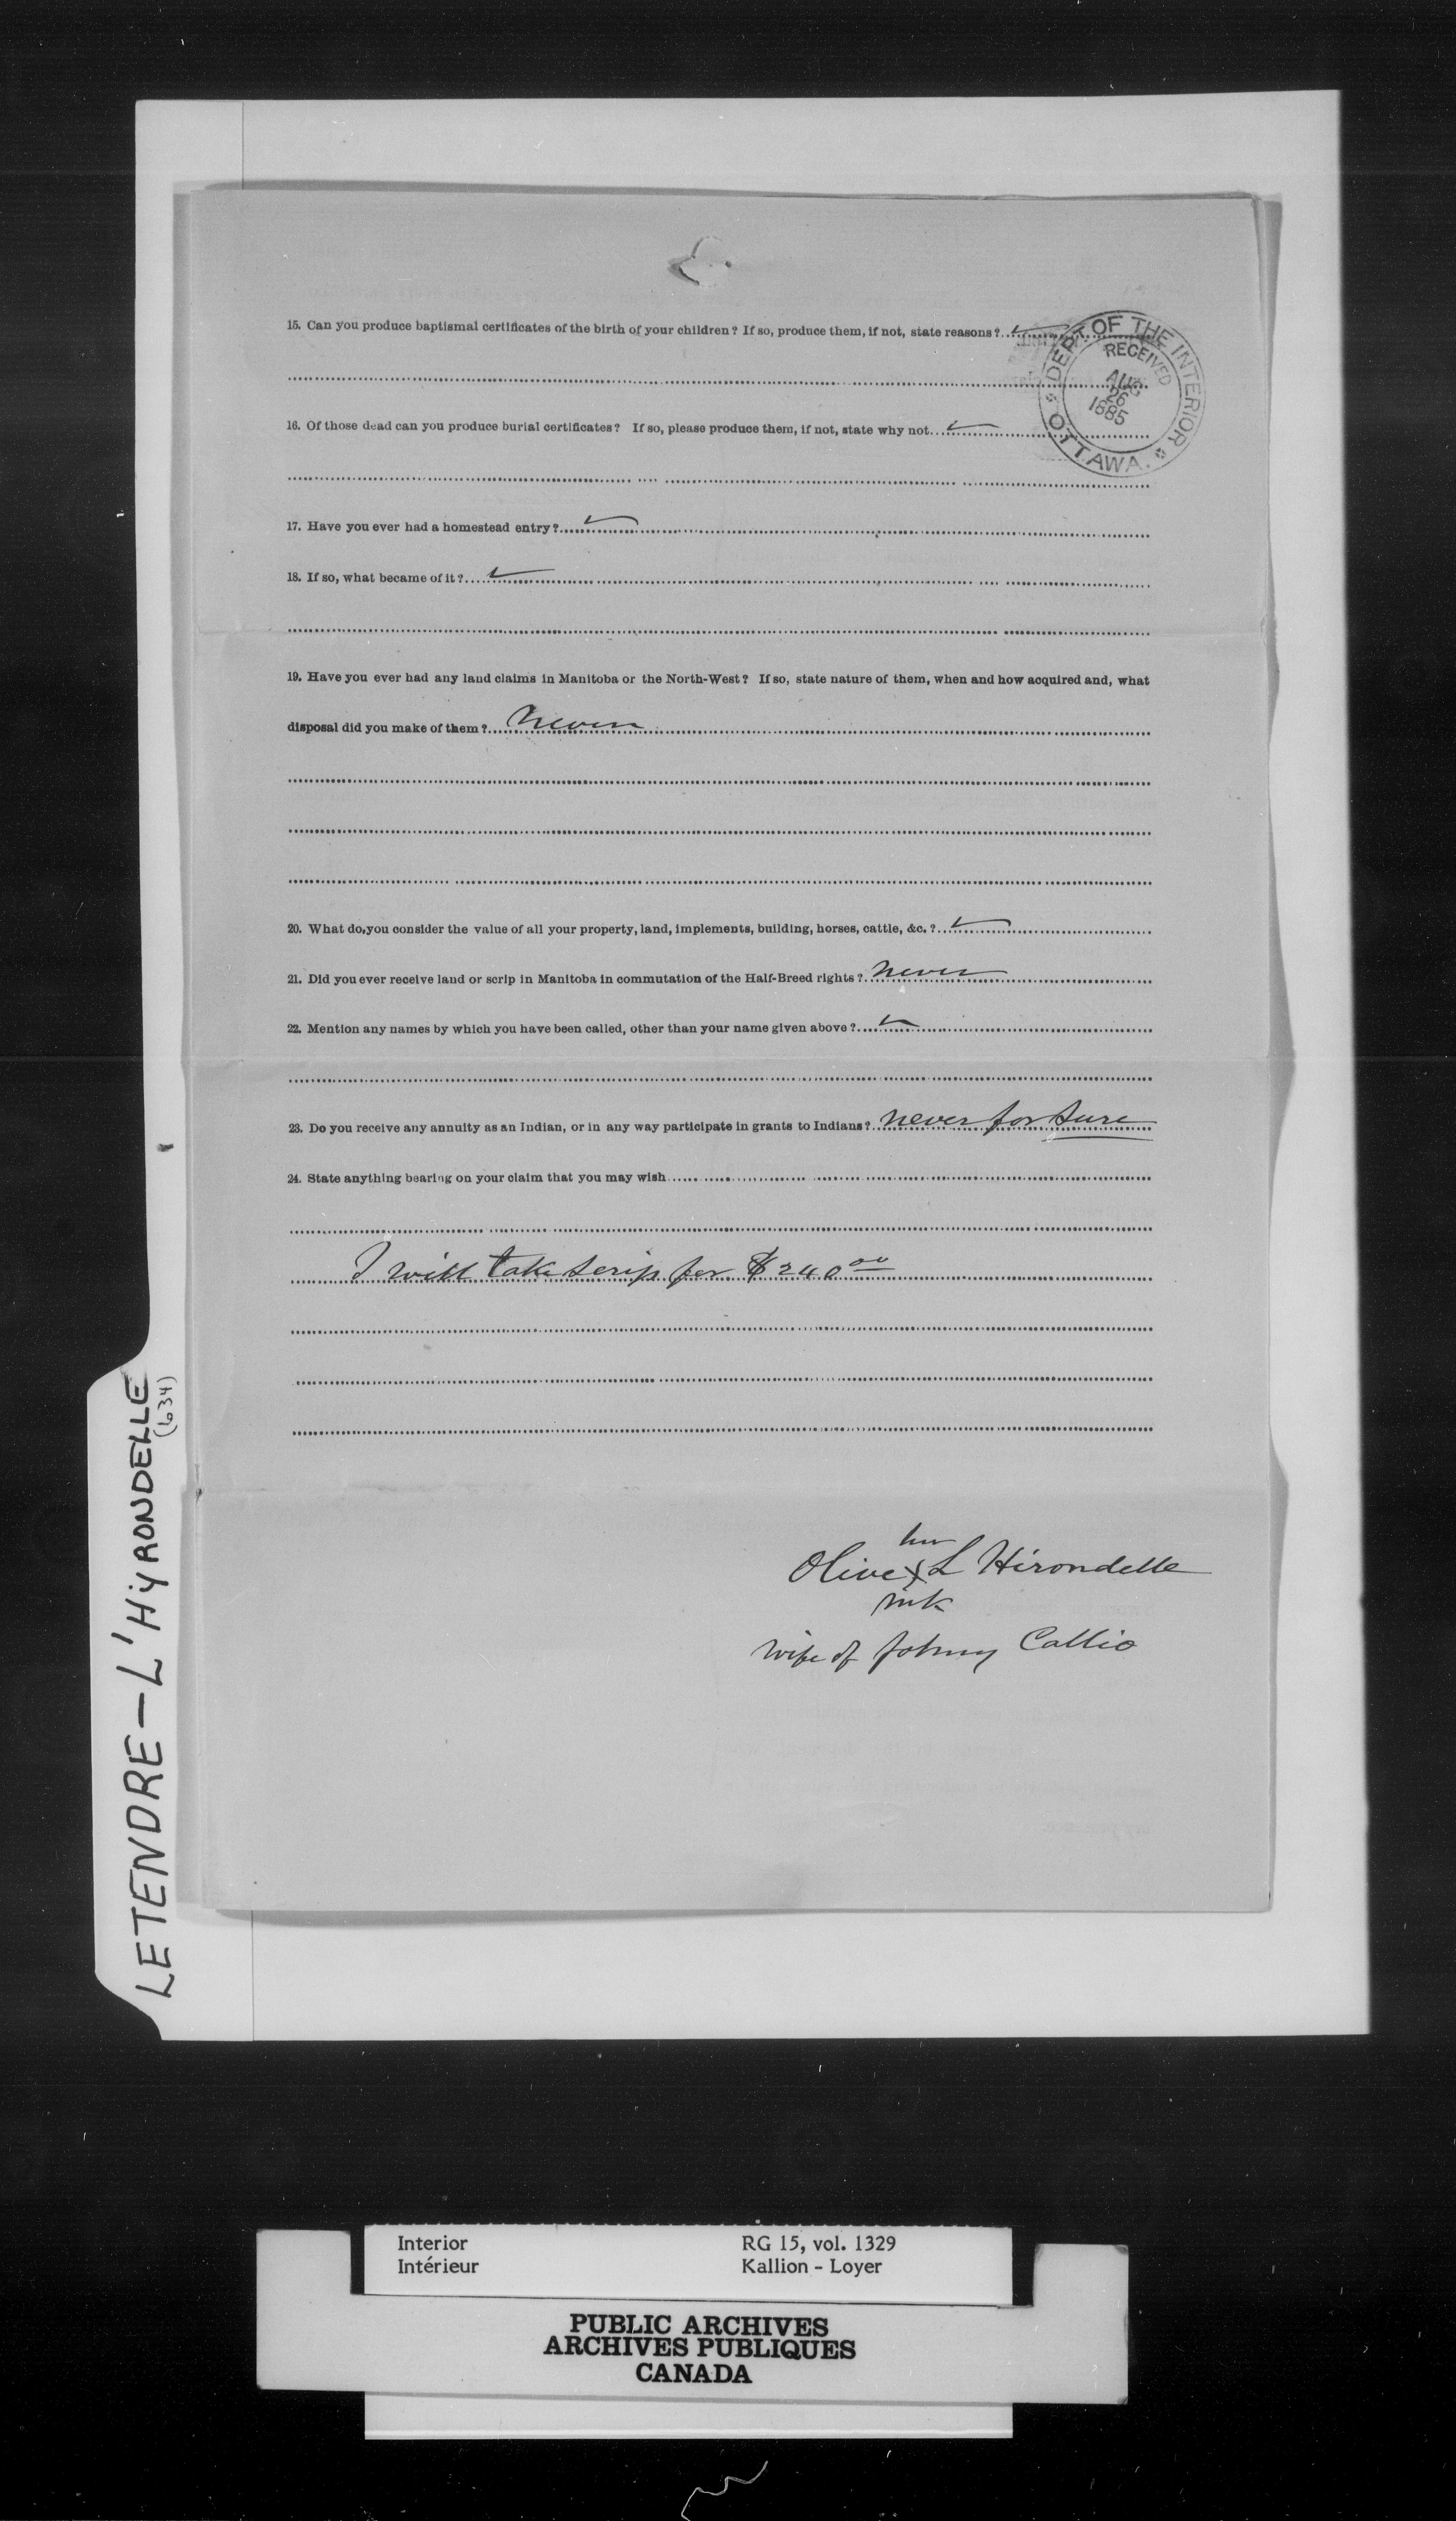 15. Can you produce baptismal certificates of the birth of your children? If so, produce them, if not, state reasons?
DEPT. OF THE INTERIOR
RECEIVED
AUG
26
1885
OTTAWA.
16. Of those dead can you produce burial certificates? If so, please produce them, if not, state why not
17. Have you ever had a homestead entry?
18. If so, what became of it?
19. Have you ever had any land claims in Manitoba or the North-West? If so, state nature of them, when and how acquired and, what
disposal did you make of them? Never
20. What do you consider the value of all your property, land, implements, building, horses, cattle, &c.?
21. Did you ever receive land or scrip in Manitoba in commutation of the Half-Breed rights? Never
22. Mention any names by which you have been called, other than your name given above?
23. Do you receive any annuity as an Indian, or in any way participate in grants to Indians? never for sure
24. State anything bearing on your claim that you may wish
I will take scrip for $240 00
her
Olive X L Hirondelle
mk
wife of Johny Callio
LETENDRE - L'HYRONDELLE
(634)
Interior RG 15, vol. 1329
Intérieur Kallion - Loyer
PUBLIC ARCHIVES
ARCHIVES PUBLIQUES
CANADA